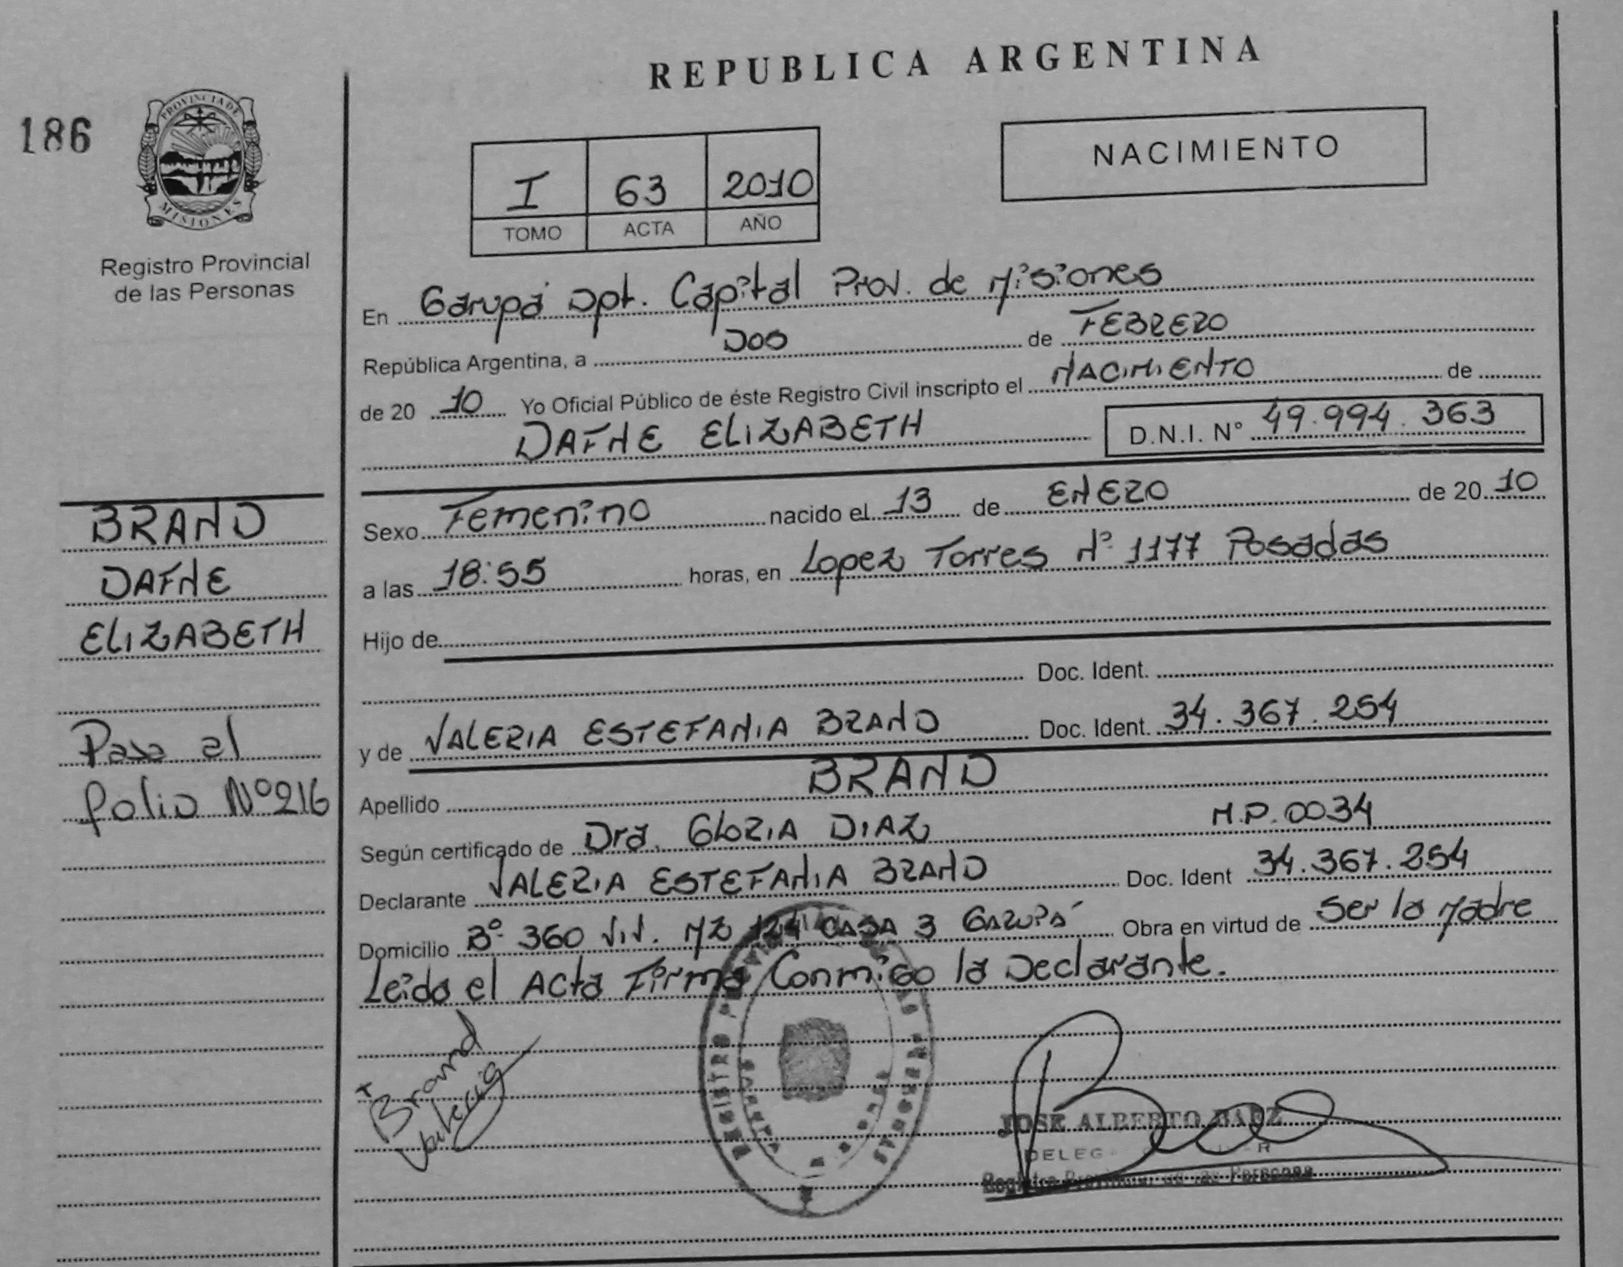 REPUBLICA ARGENTINA
186
PROVINCIA DE
MISIONES
Registro Provincial
de las Personas
NACIMIENTO
I 63 2010
TOMO ACTA AÑO
En Garupá Dpt. Capital Prov. de Misiones
República Argentina, a DOS de FEBRERO
de 20 10 Yo Oficial Público de éste Registro Civil inscripto el NACIMIENTO de
DAFNE ELIZABETH D.N.I. N° 49.994.363
BRAND
DAFNE
ELIZABETH
Pasa al
folio Nº216
Sexo Femenino nacido el 13 de ENERO de 20 10
a las 18:55 horas, en Lopez Torres Nº 1177 Posadas
Hijo de
Doc. Ident.
y de VALERIA ESTEFANIA BRAND Doc. Ident. 34.367.254
Apellido BRAND
Según certificado de Dra. GLORIA DIAZ M.P. 0034
Declarante VALERIA ESTEFANIA BRAND Doc. Ident 34.367.254
Domicilio Bº 360 Viv. MZ 124 CASA 3 GARUPÁ Obra en virtud de Ser la Madre
Leida el Acta Firma Conmigo la Declarante.
Brand
Valeria
JOSE ALBERTO BAEZ
Registro Provincial de las Personas